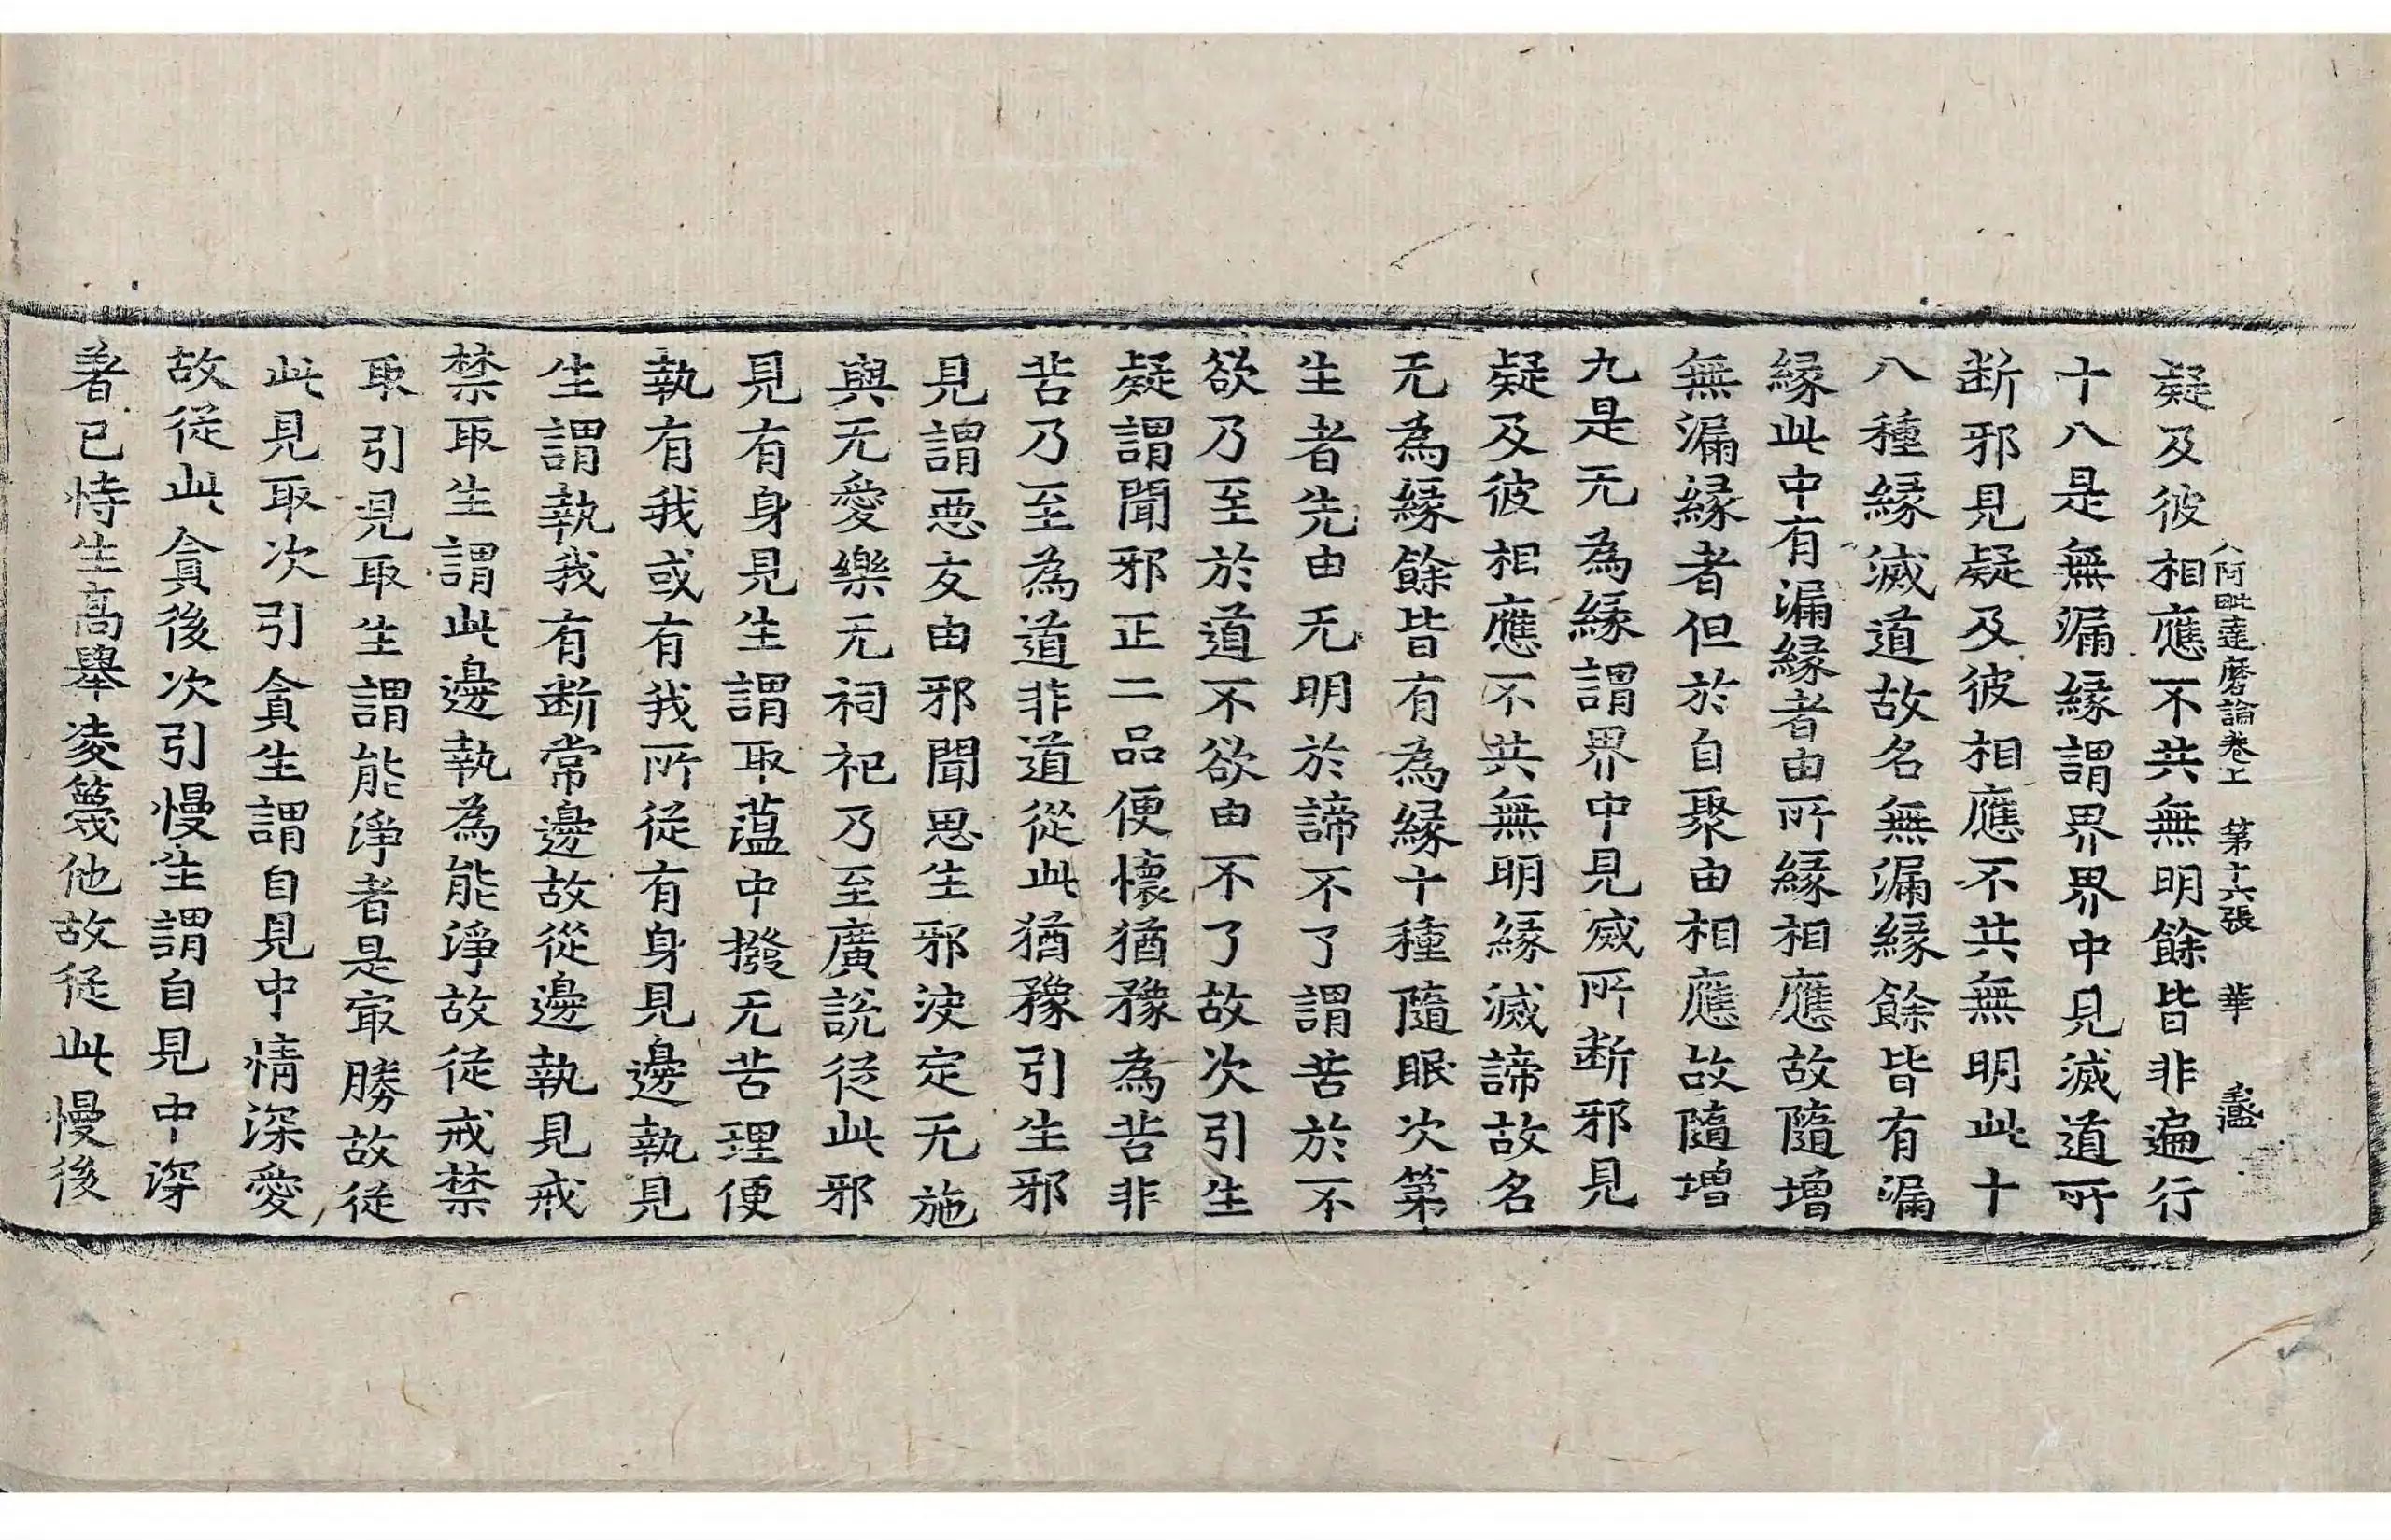 疑及彼相應不共無明餘皆非遍行
入阿毗達磨論卷上　第十六張　華
十八是無漏緣謂界界中見滅道所
断邪見疑及彼相應不共無明此十
八種緣滅道故名無漏緣餘皆有漏
緣此中有漏緣者由所緣相應故隨增
無漏緣者但於自聚由相應故隨增
九是无為緣謂界中見滅所断邪見
疑及彼相應不共無明緣滅諦故名
无為緣餘皆有為緣十種隨眠次第
生者先由无明於諦不了謂苦於不
欲乃至於道不欲由不了故次引生
疑謂聞邪正二品便懷猶豫為苦非
苦乃至為道非道從此猶豫引生邪
見謂惡友由邪聞思生邪决定无施
與无愛樂无祠祀乃至廣說從此邪
見有身見生謂取蕰中撥无苦理便
執有我或有我所從有身見邊執見
生謂執我有断常邊故從邊執見戒
禁取生謂此邊執為能淨故從戒禁
取引見取生謂能淨者是㝡勝故從
此見取次引貪生謂自見中情深愛
故從此貪後次引慢生謂自見中深
著已恃生高舉凌篾他故從此慢後